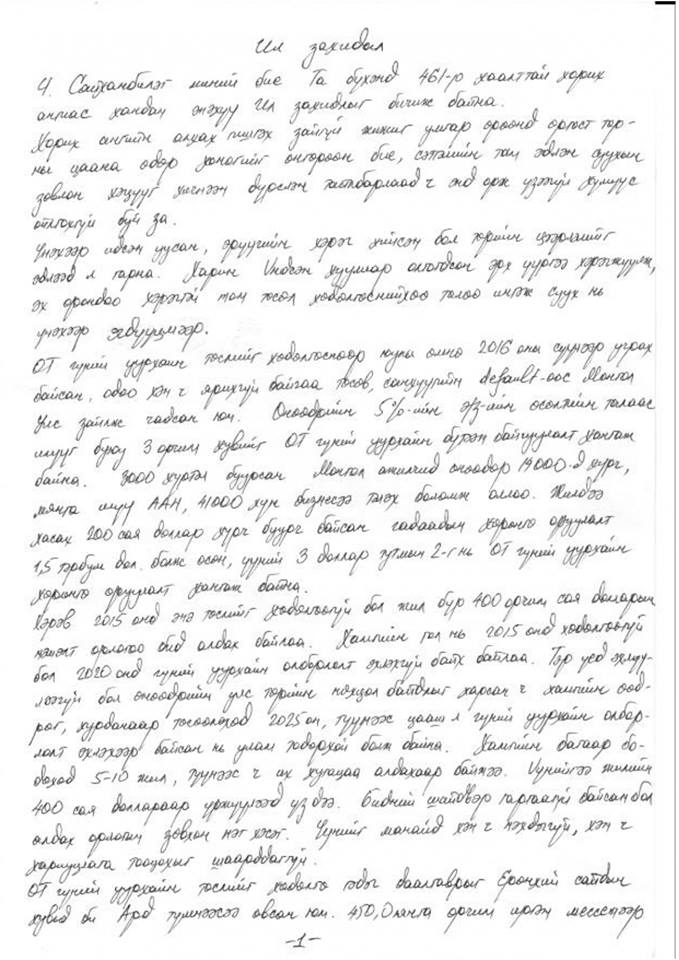 Ил захидал
Ч. Сайханбилэг миний бие Та бүхэнд 461-р хаалттай хорих
ангиас хандан энэхүү Ил захидлыг бичиж байна.
Хорих ангийн алхах гишгэх зайгүй жижиг умгар өрөөнд өргөст тор-
ны цаана өдөр хоногийг өнгөрөөн бие, сэтгэлийн там эдлэн суухын
зовлон хэцүүг хичнээн дүрслэн тайлбарлаад ч энд орж үзээгүй хүмүүс
ойлгохгүй буй за.
Үнэхээр идсэн уусан, эрүүгийн хэрэг хийсэн бол төрийн цээрлэлийг
эдлээд л гарна. Харин Үндсэн хуулиар олгогдсон эрх үүргээ хэрэгжүүлж,
эх орондоо хэрэгтэй том төсөл хөдөлгөснийхөө төлөө ингэж суух нь
үнэхээр эгдүүцмээр.
ОТ гүний уурхайн төслийг хөдөлгөснөөр юуны өмнө 2016 оны сүүлээр учрах
байсан, одоо хэн ч ярихгүй байгаа төсөв, санхүүгийн default-аас Монгол
Улс зайлж чадсан юм. Өнөөдрийн 5%-ийн эдз-ийн өсөлтийн талаас
илүүг буюу 3 орчим хувийг ОТ гүний уурхайн бүтээн байгуулалт хангаж
байна. 3000 хүртэл буурсан Монгол ажилчид өнөөдөр 14000-д хүрч,
мянга илүү ААН, 41000 хүн бизнесээ тэлэх боломж оллоо. Жилдээ
хасах 200 сая доллар хүрч буурч байсан гадаадын хөрөнгө оруулалт
1,5 тэрбум дол. болж өсөн, үүний 3 доллар тутмын 2-г нь ОТ гүний уурхайн
хөрөнгө оруулалт хангаж байна.
Хэрэв 2015 онд энэ төслийг хөдөлгөөгүй бол жил бүр 400 орчим сая долларын
нэмэлт орлогоо бид алдах байлаа. Хамгийн гол нь 2015 онд хөдөлгөөгүй
бол 2020 онд гүний уурхайн олборлолт эхлэхгүй байх байлаа. Тэр үед эхлүү-
лээгүй бол өнөөдрийн улс төрийн нөхцөл байдлыг харсан ч хамгийн өөд-
рөг, хурдаанаар төсөөлөхөд 2025 он, түүнээс цааш л гүний уурхайн олбор-
лолт эхлэхээр байсан нь улам тодорхой болж байна. Хамгийн багаар бо-
доход 5-10 жил, түүнээс ч их хугацаа алдахаар байжээ. Үүнийгээ жилийн
400 сая доллараар үржүүлээд үз дээ. Бидний шийдвэр гаргаагүй байсан бол
алдах орлогын зөвхөн нэг хэсэг. Үүнийг манайд хэн ч нэхдэггүй, хэн ч
хариуцлага тооцохыг шаарддаггүй.
ОТ гүний уурхайн төслийг хөдөлгө гэдэг даалгаврыг Ерөнхий сайдын
хувьд би Ард түмнээсээ авсан юм. 450,0 мянга орчим иргэн мессежээр
-1-